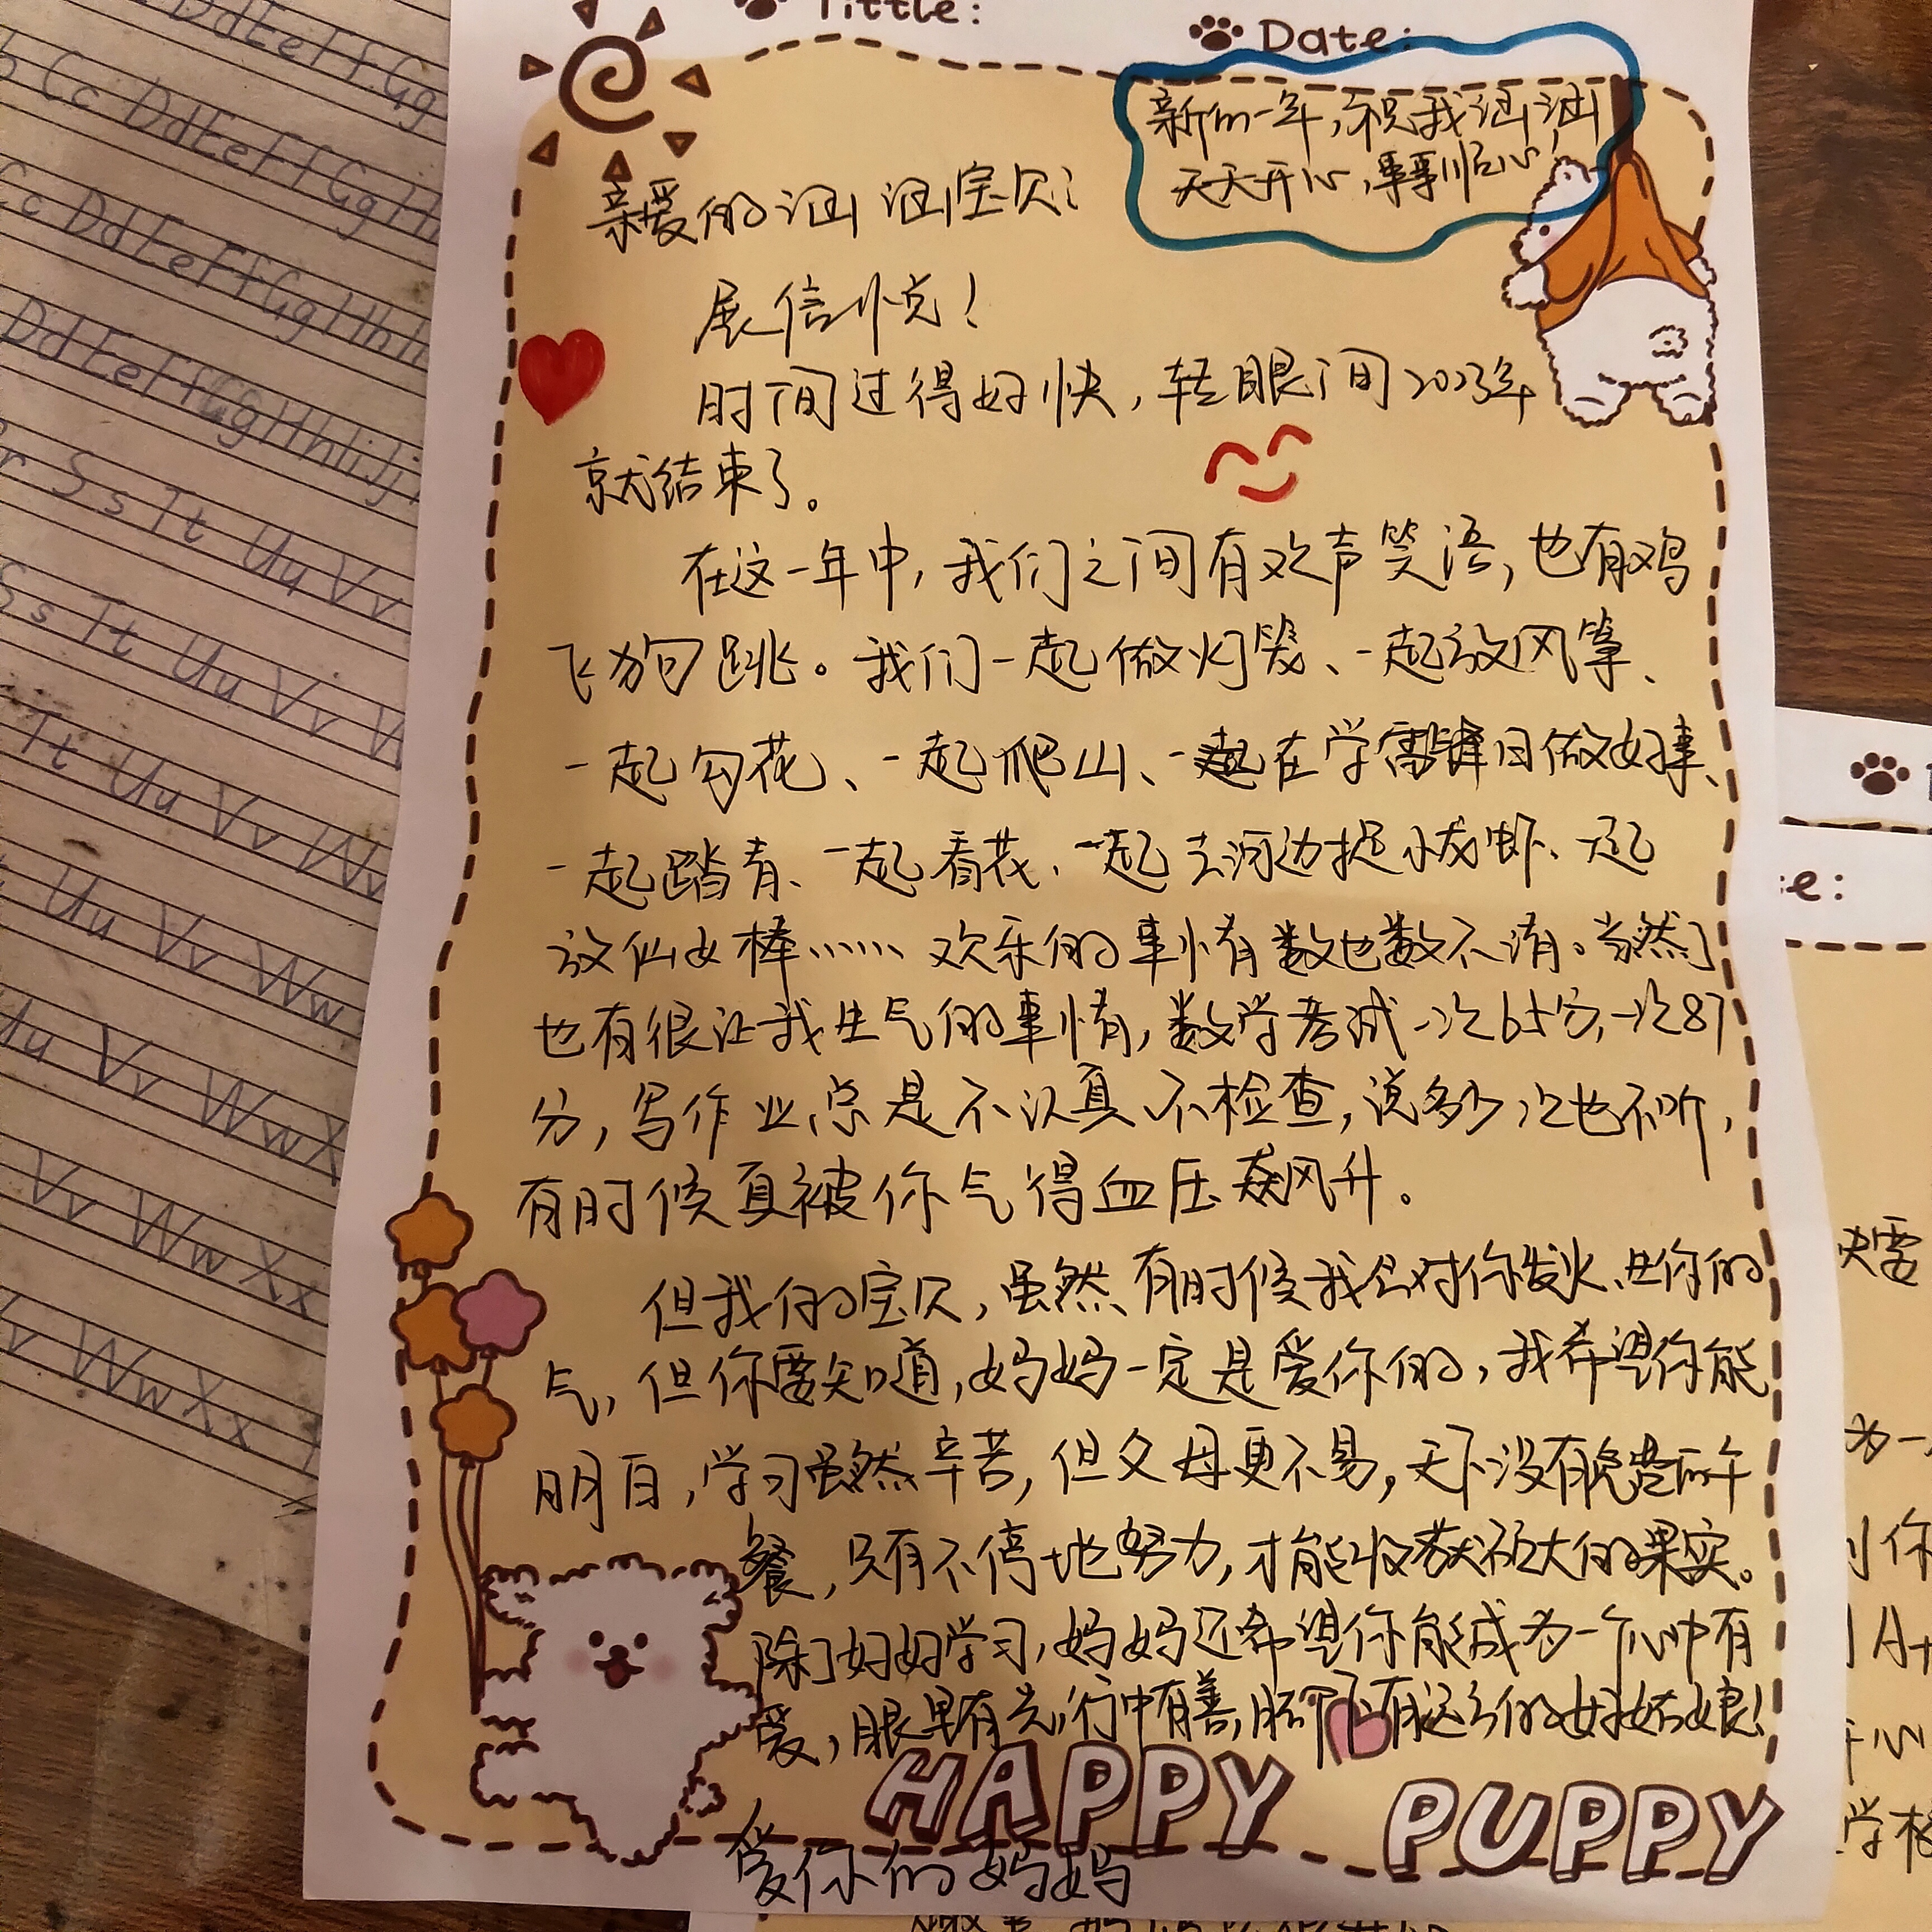 Tittle:
Date:
新的一年,祝我涵涵
天天开心,事事顺心
亲爱的涵涵宝贝:
展信悦!
时间过得好快,转眼间2023年
就结束了。
在这一年中,我们之间有欢声笑语,也有鸡
飞狗跳。我们一起做灯笼、一起放风筝、
一起勾花、一起爬山、一起在学雷锋日做好事、
一起踏青、一起看花、一起去河边捉小龙虾、一起
放仙女棒…… 欢乐的事情有数也数不清。当然了
也有很让我生气的事情,数学考试一次65分,一次87
分,写作业总是不认真、不检查,说多少次也不听,
有时候真被你气得血压飙升。
但我的宝贝,虽然有时候我会对你发火、生你的
气,但你要知道,妈妈一定是爱你的,我希望你能
明白,学习虽然辛苦,但父母更不易,天下没有免费的午
餐,只有不停地努力,才能收获硕大的果实。
除了好好学习,妈妈还希望你能成为一个心中有
爱,眼里有光,行中有善,脚下有远方的好姑娘!
HAPPY PUPPY
爱你的妈妈
Dd Ee Ff Gg
Cc Dd Ee Ff Gg Hh
Cc Dd Ee Ff Gg Hh
Dd Ee Ff Gg Hh Ii Jj
Ss Tt Uu Vv
Ss Tt Uu Vv W
Tt Uu Vv Ww
Uu Vv Ww
Uu Vv Ww X
Vv Ww Xx
Vv Ww Xx
e:
你
A+
学校